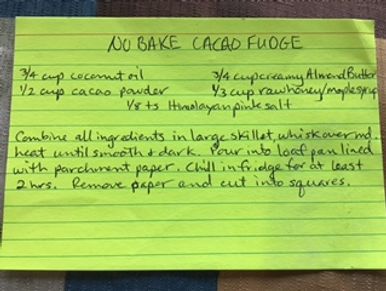 NO BAKE CACAO FUDGE
3/4 cup coconut oil 3/4 cup creamy Almond Butter
1/2 cup cacao powder 1/3 cup raw honey/maple syrup
1/8 ts Himalayan pink salt
Combine all ingredients in large skillet, whisk over md
heat until smooth & dark. Pour into loaf pan lined
with parchment paper. Chill in fridge for at least
2 hrs. Remove paper and cut into squares.